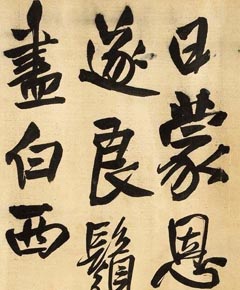 日蒙恩
遂良鬚
盡白西